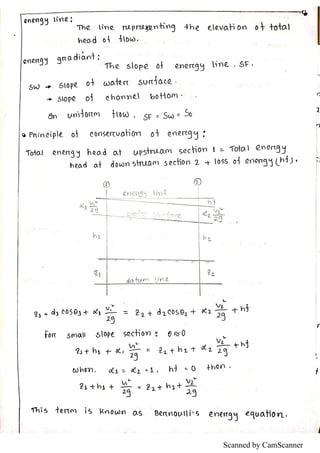 energy line:
The line representing the elevation of total
head of flow.
energy gradiant:
The slope of energy line. SF.
Sw → slope of water surface.
→ slope of channel bottom.
In uniform flow, SF = Sw = So
Principle of conservation of energy:
Total energy head at upstream section 1 = Total energy
head at downstream section 2 + loss of energy (hf).
① ②
energy line
hf
α1 V1²/2g water surface α2 V2²/2g
h1 h2
z1 datum line z2
z1 + d1 cosθ1 + α1 V1²/2g = z2 + d2 cosθ2 + α2 V2²/2g + hf
For small slope section: θ≈0
z1 + h1 + α1 V1²/2g = z2 + h2 + α2 V2²/2g + hf
when, α1 = α2 = 1, hf = 0 then.
z1 + h1 + V1²/2g = z2 + h2 + V2²/2g
This term is known as Bernoulli's energy equation.
Scanned by CamScanner